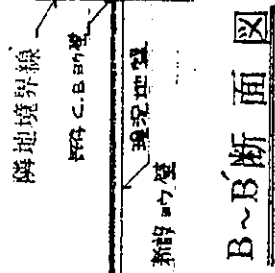 隣地境界線
既存C.Bヨウ壁
現況地盤
新設ヨウ壁
B~B'断面図